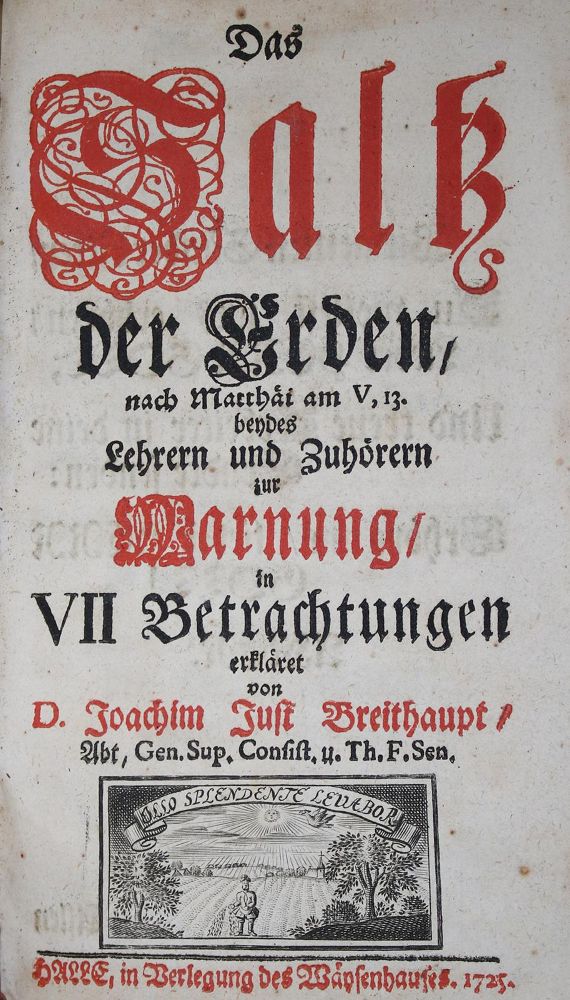 Das
Saltz
der Erden,
nach Matthäi am V, 13.
beydes
Lehrern und Zuhörern
zur
Warnung,
in
VII Betrachtungen
erkläret
von
D. Joachim Just Breithaupt,
Abt, Gen. Sup. Consist. u. Th. F. Sen.
ILLO SPLENDENTE LEVABOR
HALLE, in Verlegung des Wäysenhauses. 1725.